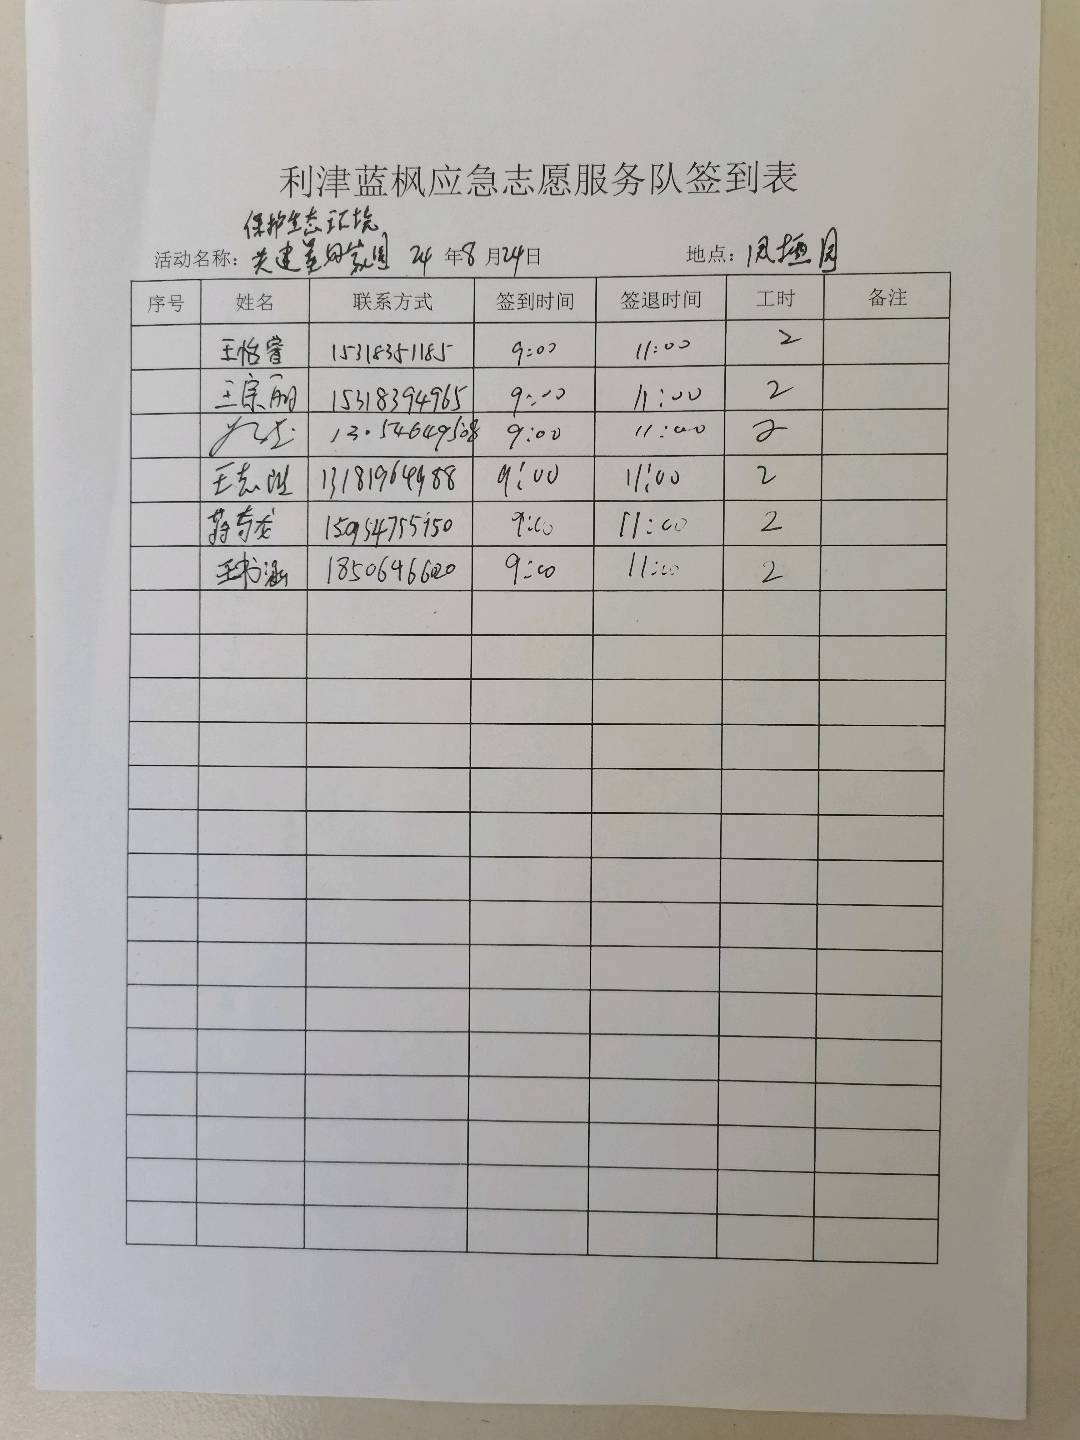 利津蓝枫应急志愿服务队签到表
保护生态环境
活动名称：共建美丽家园 24年8月24日 地点：凤栖园
序号 姓名 联系方式 签到时间 签退时间 工时 备注
王怡睿 15318351185 9:00 11:00 2
王宗丽 15318394965 9:00 11:00 2
9:00 11:00 2
王志胜 13181964988 9:00 11:00 2
蒋春龙 15954755150 9:00 11:00 2
王书涵 9:00 11:00 2